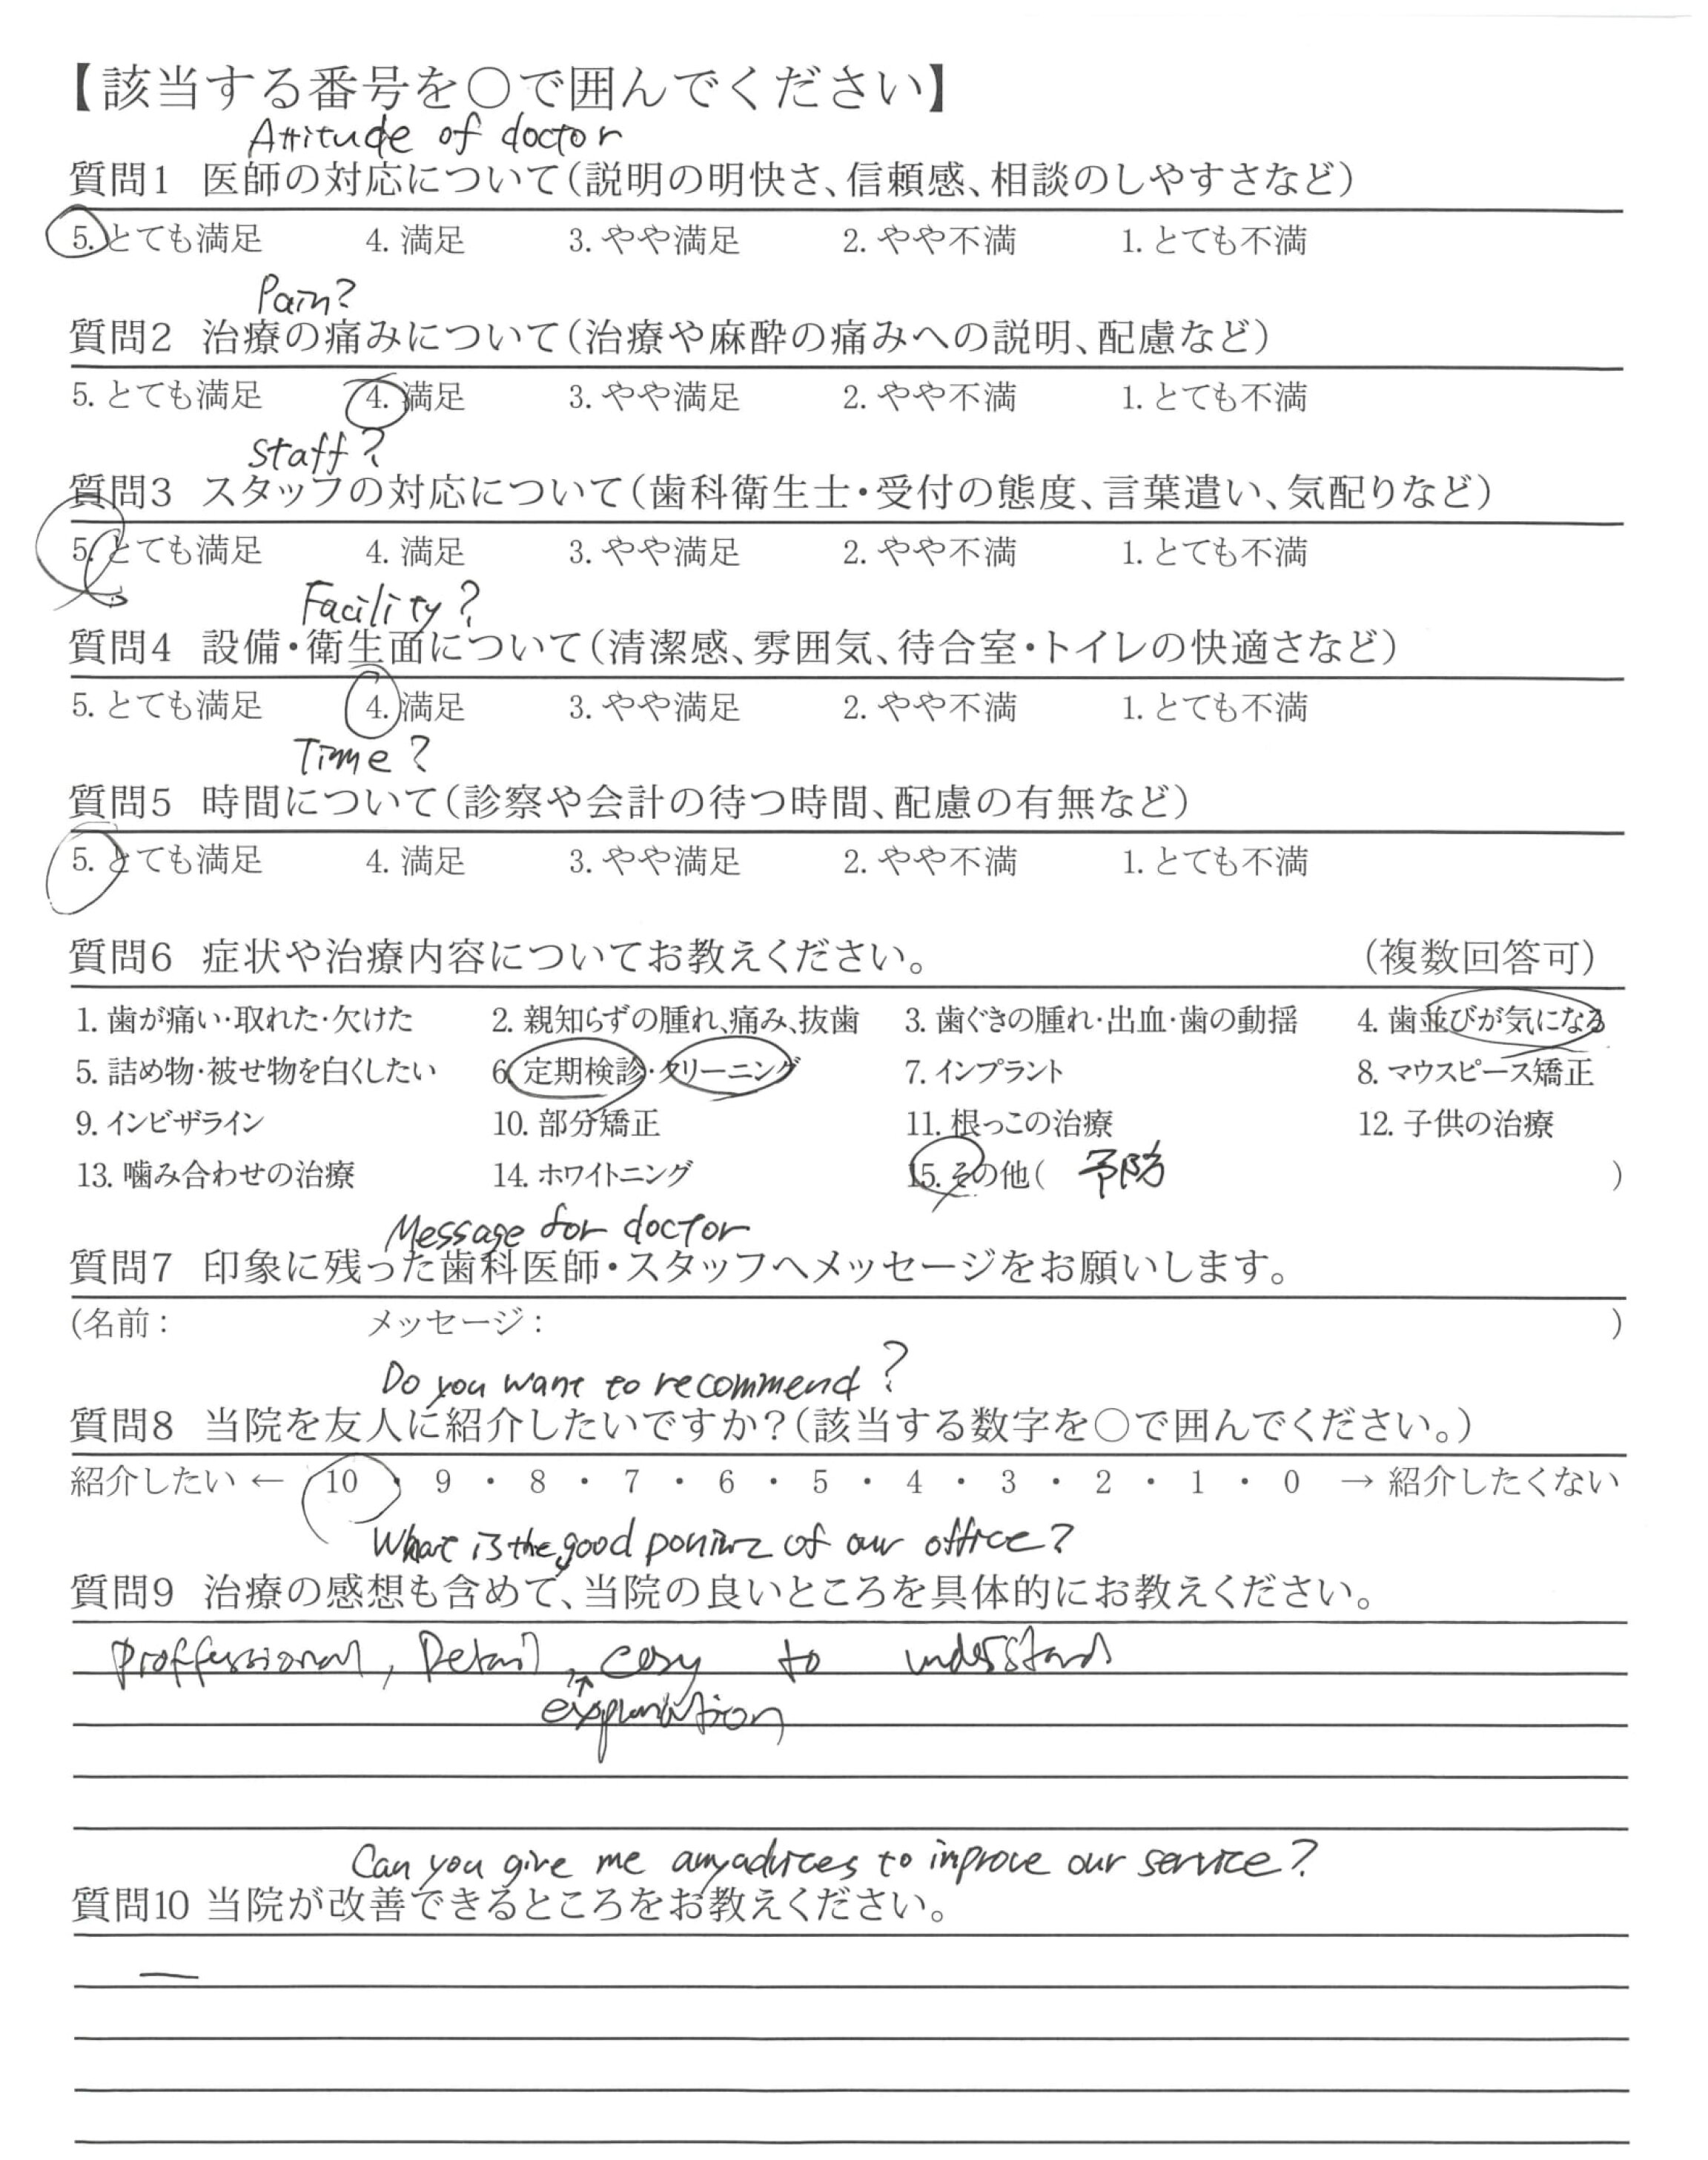 【該当する番号を○で囲んでください】
Attitude of doctor
質問1 医師の対応について(説明の明快さ、信頼感、相談のしやすさなど)
5. とても満足 4. 満足 3. やや満足 2. やや不満 1. とても不満
Pain?
質問2 治療の痛みについて(治療や麻酔の痛みへの説明、配慮など)
5. とても満足 4. 満足 3. やや満足 2. やや不満 1. とても不満
Staff?
質問3 スタッフの対応について(歯科衛生士・受付の態度、言葉遣い、気配りなど)
5. とても満足 4. 満足 3. やや満足 2. やや不満 1. とても不満
Facility?
質問4 設備・衛生面について(清潔感、雰囲気、待合室・トイレの快適さなど)
5. とても満足 4. 満足 3. やや満足 2. やや不満 1. とても不満
Time?
質問5 時間について(診察や会計の待つ時間、配慮の有無など)
5. とても満足 4. 満足 3. やや満足 2. やや不満 1. とても不満
質問6 症状や治療内容についてお教えください。 (複数回答可)
1. 歯が痛い・取れた・欠けた 2. 親知らずの腫れ、痛み、抜歯 3. 歯ぐきの腫れ・出血・歯の動揺 4. 歯並びが気になる
5. 詰め物・被せ物を白くしたい 6. 定期検診・クリーニング 7. インプラント 8. マウスピース矯正
9. インビザライン 10. 部分矯正 11. 根っこの治療 12. 子供の治療
13. 噛み合わせの治療 14. ホワイトニング 15. その他( 予防 )
Message for doctor
質問7 印象に残った歯科医師・スタッフへメッセージをお願いします。
(名前: メッセージ: )
Do you want to recommend?
質問8 当院を友人に紹介したいですか?(該当する数字を○で囲んでください。)
紹介したい ← 10 ・ 9 ・ 8 ・ 7 ・ 6 ・ 5 ・ 4 ・ 3 ・ 2 ・ 1 ・ 0 → 紹介したくない
What is the good of our office?
質問9 治療の感想も含めて、当院の良いところを具体的にお教えください。
Proffessional, Detail, easy to understand
explanation
Can you give me any advices to improve our service?
質問10 当院が改善できるところをお教えください。
—